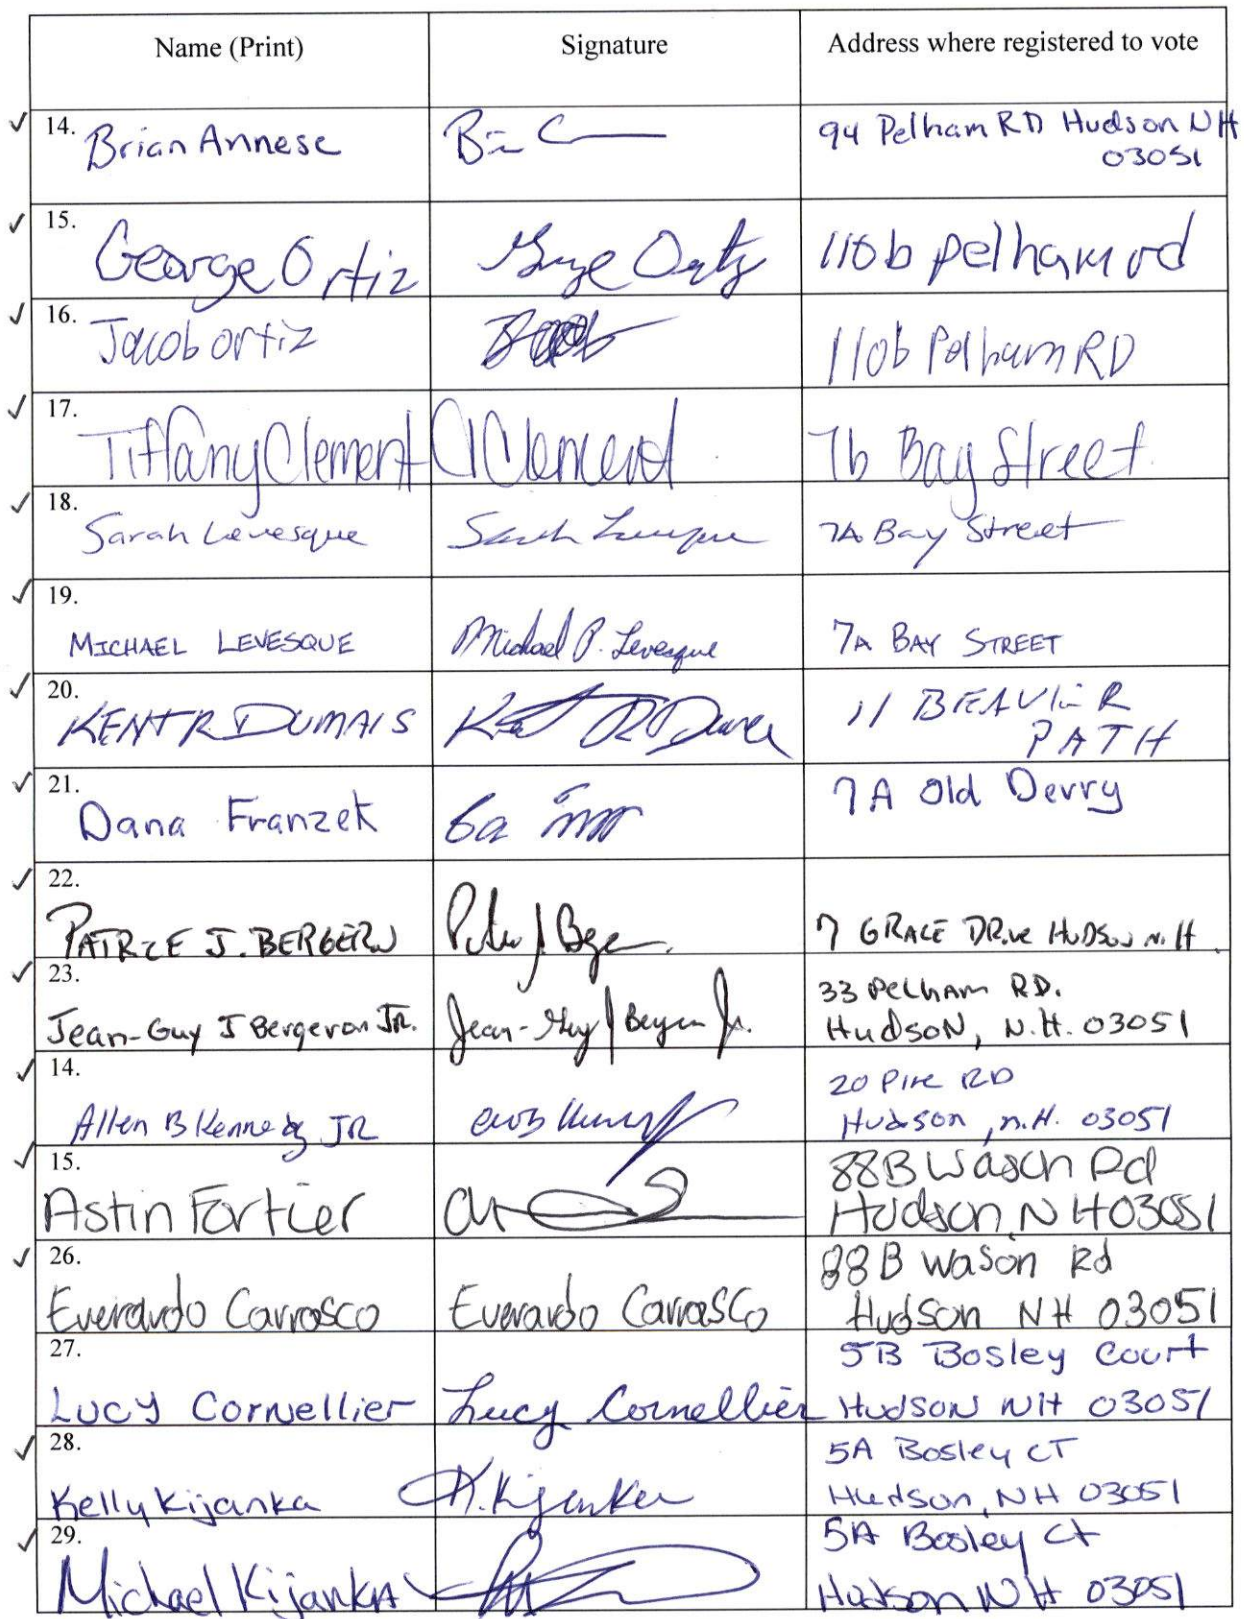 Name (Print) Signature Address where registered to vote
14. Brian Annese 94 Pelham RD Hudson NH
03051
15. George Ortiz 110b pelham rd
16. Jacob ortiz 110b Pelham RD
17. Tiffany Clement Clement 7b Bay Street
18. Sarah Levesque 7A Bay Street
19. MICHAEL LEVESQUE Michael P. Levesque 7A BAY STREET
20. KENT R DUMAIS 11 BEAVER
PATH
21. Dana Franzek 7A Old Derry
22. PATRICE J. BERGERN 7 GRACE DRive HUDSON N.H.
23. Jean-Guy J Bergeron JR. Jean-Guy J Bergeron Jr. 33 Pelham RD.
HudsoN, N.H. 03051
14. Allen B Kennedy JR 20 Pine RD
Hudson, n.H. 03051
15. Astin Fortier 88B Wasch Rd
Hudson, NH 03051
26. Everardo Carrasco Everardo Carrasco 88B Wason Rd
Hudson NH 03051
27. LUCY CorNellier Lucy Cornellier 5B Bosley Court
HudSoN NH 03051
28. Kelly Kijanka K. Kijanka 5A Bosley CT
Hudson, NH 03051
29. Michael KijankA 5A Bosley Ct
Hudson NH 03051